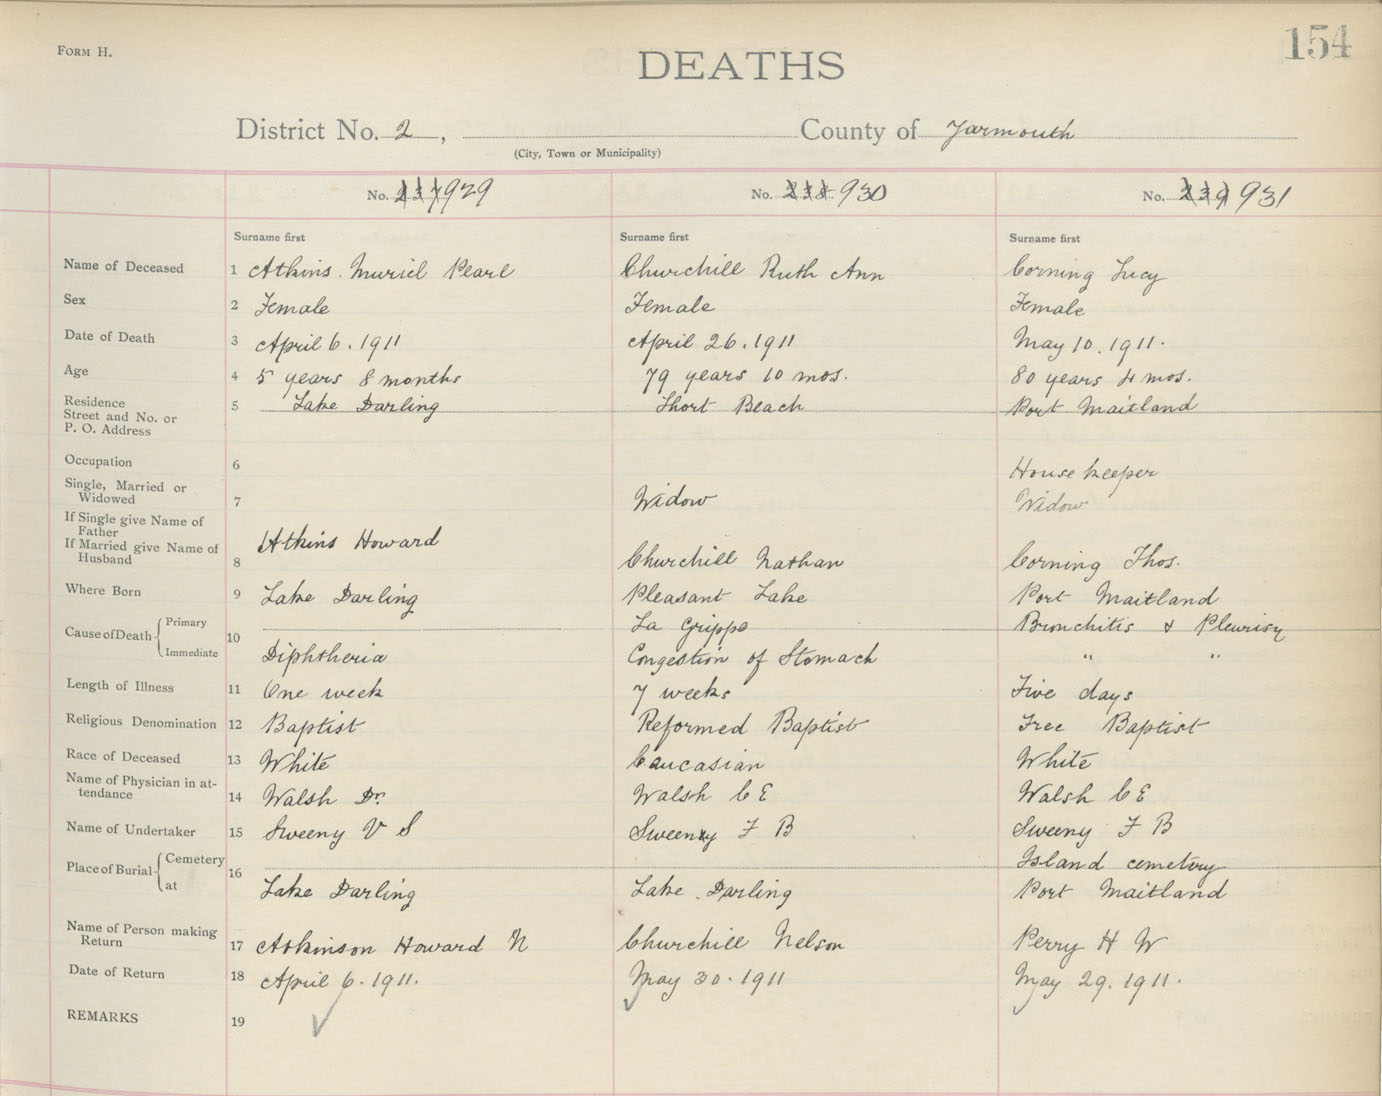 FORM H.
154
DEATHS
District No. 2, County of Yarmouth
(City, Town or Municipality)
No. 237 929 No. 238 930 No. 239 931
Surname first Surname first Surname first
Name of Deceased 1 Atkins. Muriel Pearl Churchill Ruth Ann Corning Lucy
Sex 2 Female Female Female
Date of Death 3 April 6. 1911 April 26. 1911 May 10. 1911.
Age 4 5 years 8 months 79 years 10 mos. 80 years 4 mos.
Residence
Street and No. or
P. O. Address 5 Lake Darling Short Beach Port Maitland
Occupation 6 House keeper
Single, Married or
Widowed 7 Widow Widow
If Single give Name of
Father Atkins Howard
If Married give Name of
Husband 8 Churchill Nathan Corning Thos.
Where Born 9 Lake Darling Pleasant Lake Port Maitland
Cause of Death 10 Primary La Grippe Bronchitis & Pleurisy
Immediate Diphtheria Congestion of Stomach " "
Length of Illness 11 One week 7 weeks Five days
Religious Denomination 12 Baptist Reformed Baptist Free Baptist
Race of Deceased 13 White Caucasian White
Name of Physician in at-
tendance 14 Walsh Dr. Walsh C E Walsh C E
Name of Undertaker 15 Sweeny V S Sweeny F B Sweeny F B
Place of Burial 16 Cemetery Island cemetery
at Lake Darling Lake Darling Port Maitland
Name of Person making
Return 17 Atkinson Howard N Churchill Nelson Perry H W
Date of Return 18 April 6. 1911. May 30. 1911 May 29. 1911.
REMARKS 19